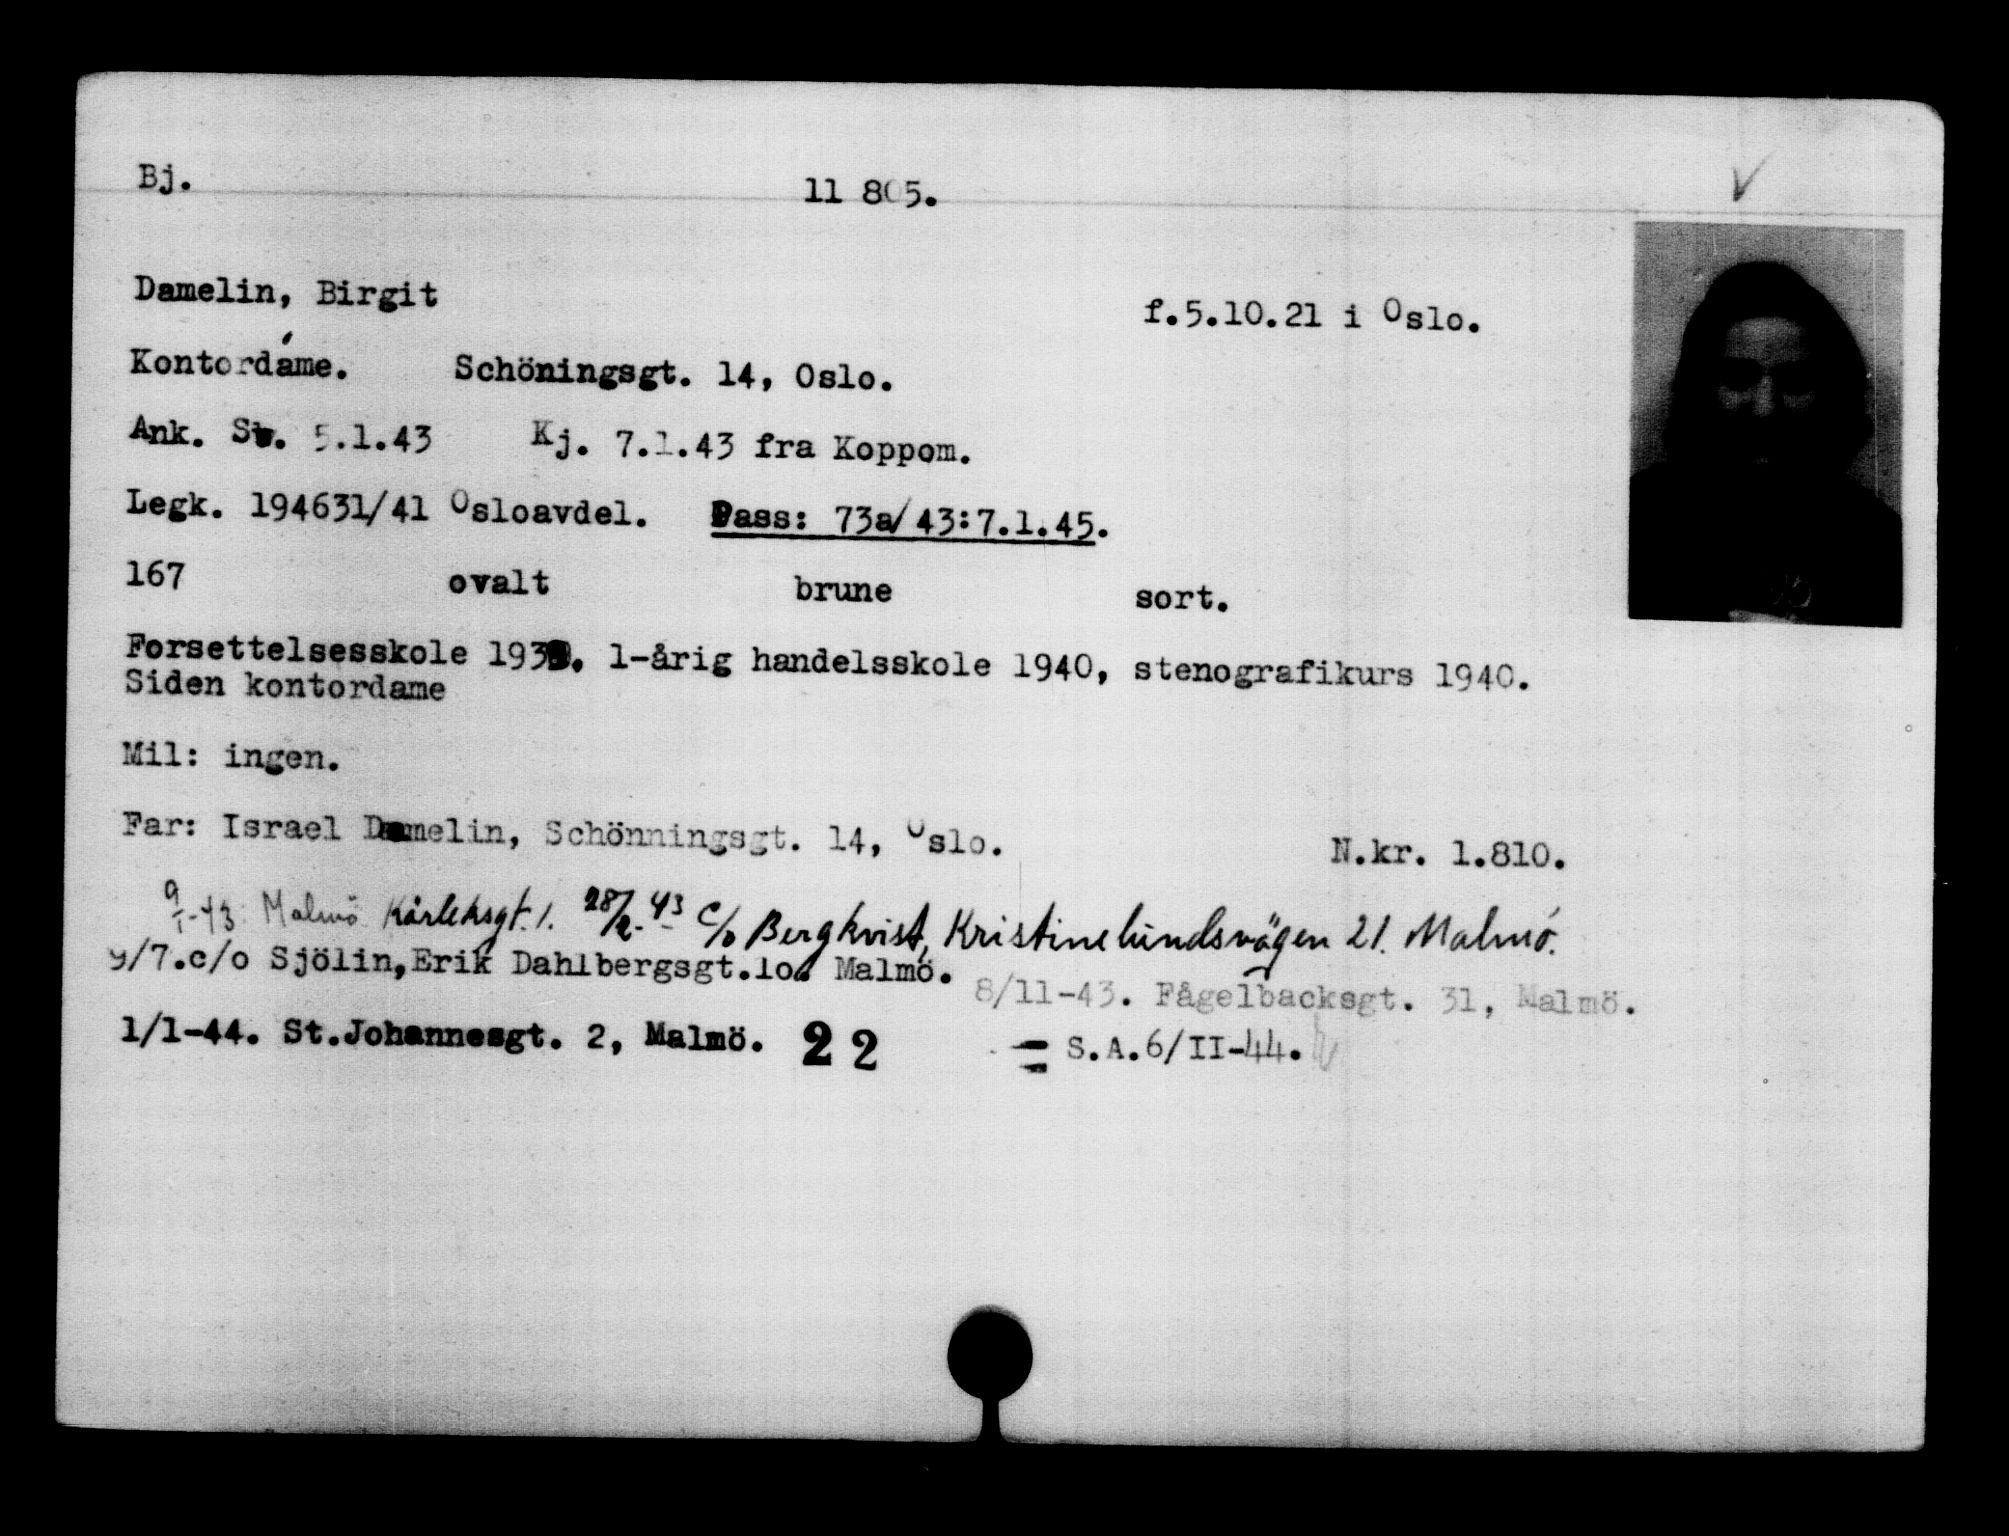 Bj. 11 805.
Damelin, Birgit f.5.10.21 i Oslo.
Kontordame. Schöningsgt. 14, Oslo.
Ank. Sv. 5.1.43 Kj. 7.1.43 fra Koppom.
Legk. 194631/41 Osloavdel. Pass: 73a/43:7.1.45.
167 ovalt brune sort.
Forsettelsesskole 1939. 1-årig handelsskole 1940, stenografikurs 1940.
Siden kontordame
Mil: ingen.
Far: Israel Damelin, Schönningsgt. 14, Oslo. N.kr. 1.810.
9/1-43 Malmö Kärleksgt. 1. 28/2-43 c/o Bergkvist, Kristinelundsvägen 21. Malmö.
9/7.c/o Sjölin,Erik Dahlbergsgt.10. Malmö. 8/11-43. Fågelbacksgt. 31, Malmö.
1/1-44. St.Johannesgt. 2, Malmö. 22 = S.A.6/II-44.